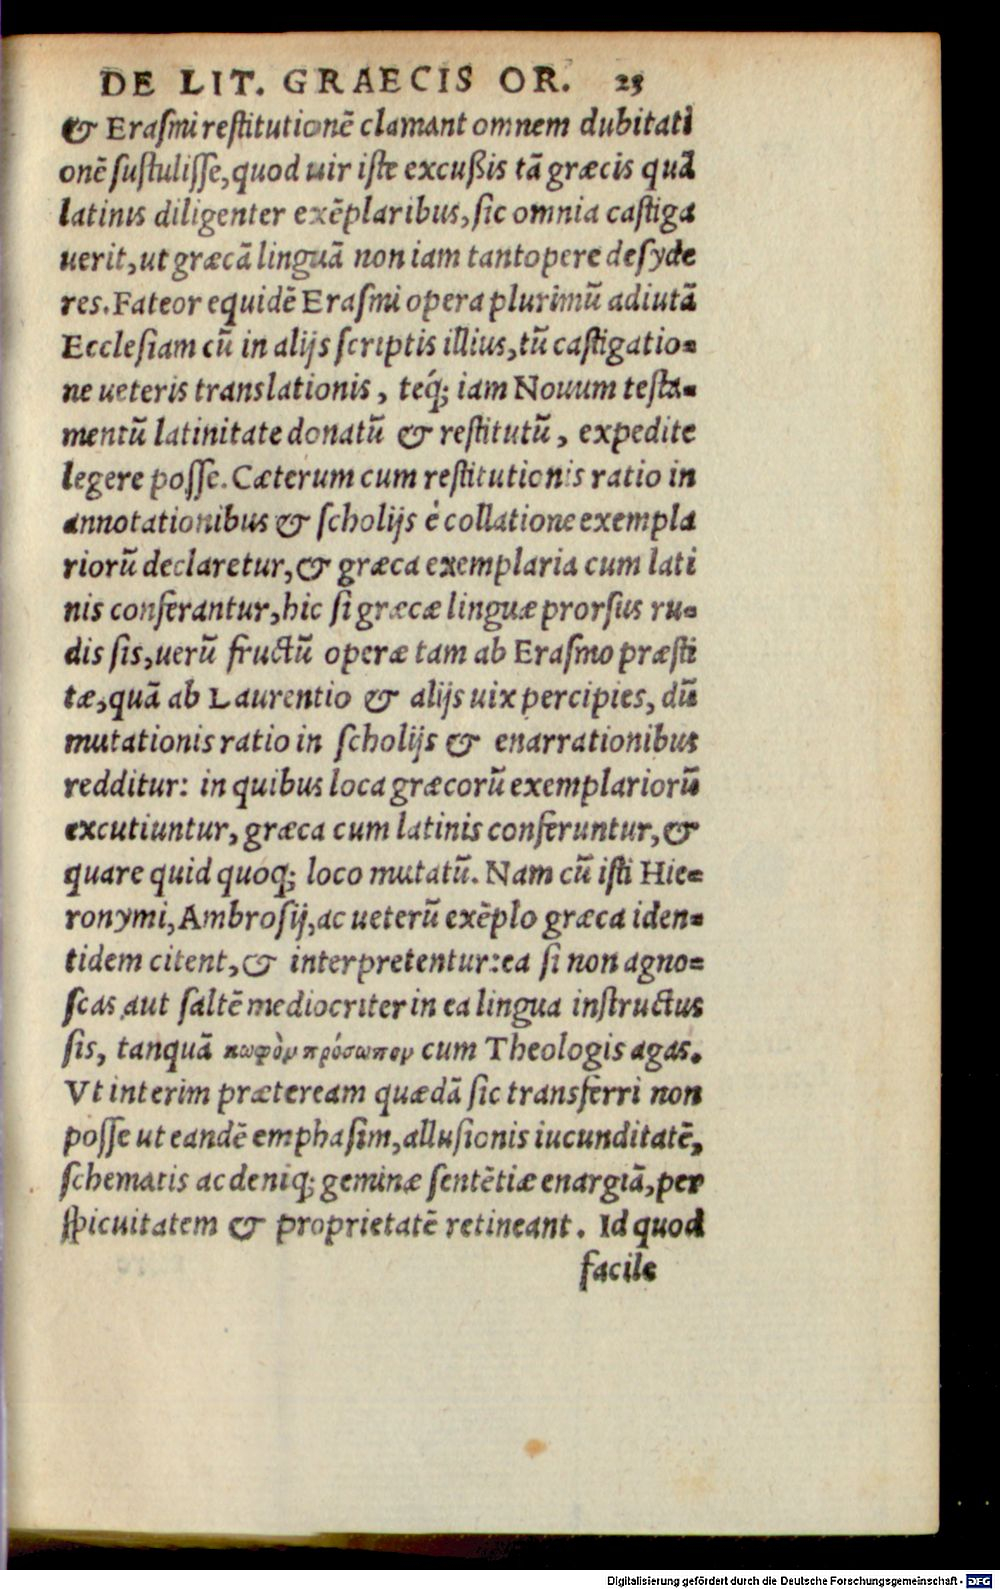 DE LIT. GRAECIS OR. 25
& Eraſmi reſtitutionē clamant omnem dubitati
onē ſuſtuliſſe, quod uir iſte excuſſis tā græcis quā
latinis diligenter exēplaribus, ſic omnia caſtiga
uerit, ut græcā linguā non iam tantopere deſyde
res. Fateor equidē Eraſmi opera plurimū adiutā
Eccleſiam cū in alijs ſcriptis illius, tū caſtigatio-
ne ueteris translationis, teq́; iam Nouum teſta-
mentū latinitate donatū & reſtitutū, expedite
legere poſſe. Cæterum cum reſtitutionis ratio in
annotationibus & ſcholijs è collatione exempla
riorū declaretur, & græca exemplaria cum lati
nis conferantur, hic ſi græcæ linguæ prorſus ru-
dis ſis, uerū fructū operæ tam ab Eraſmo præſti
tæ, quā ab Laurentio & alijs uix percipies, dū
mutationis ratio in ſcholijs & enarrationibus
redditur: in quibus loca græcorū exemplariorū
excutiuntur, græca cum latinis conferuntur, &
quare quid quoq; loco mutatū. Nam cū iſti Hie-
ronymi, Ambroſij, ac ueterū exēplo græca iden-
tidem citent, & interpretentur: ea ſi non agno-
ſcas aut ſaltē mediocriter in ea lingua inſtructus
ſis, tanquā κωφὸν πρόσωπον cum Theologis agas.
Vt interim præteream quædā ſic transferri non
poſſe ut eandē emphaſim, alluſionis iucunditatē,
ſchematis ac deniq; geminæ ſentētiæ enargiā, per
ſpicuitatem & proprietatē retineant. Id quod
facile
Digitalisierung gefördert durch die Deutsche Forschungsgemeinschaft - DFG